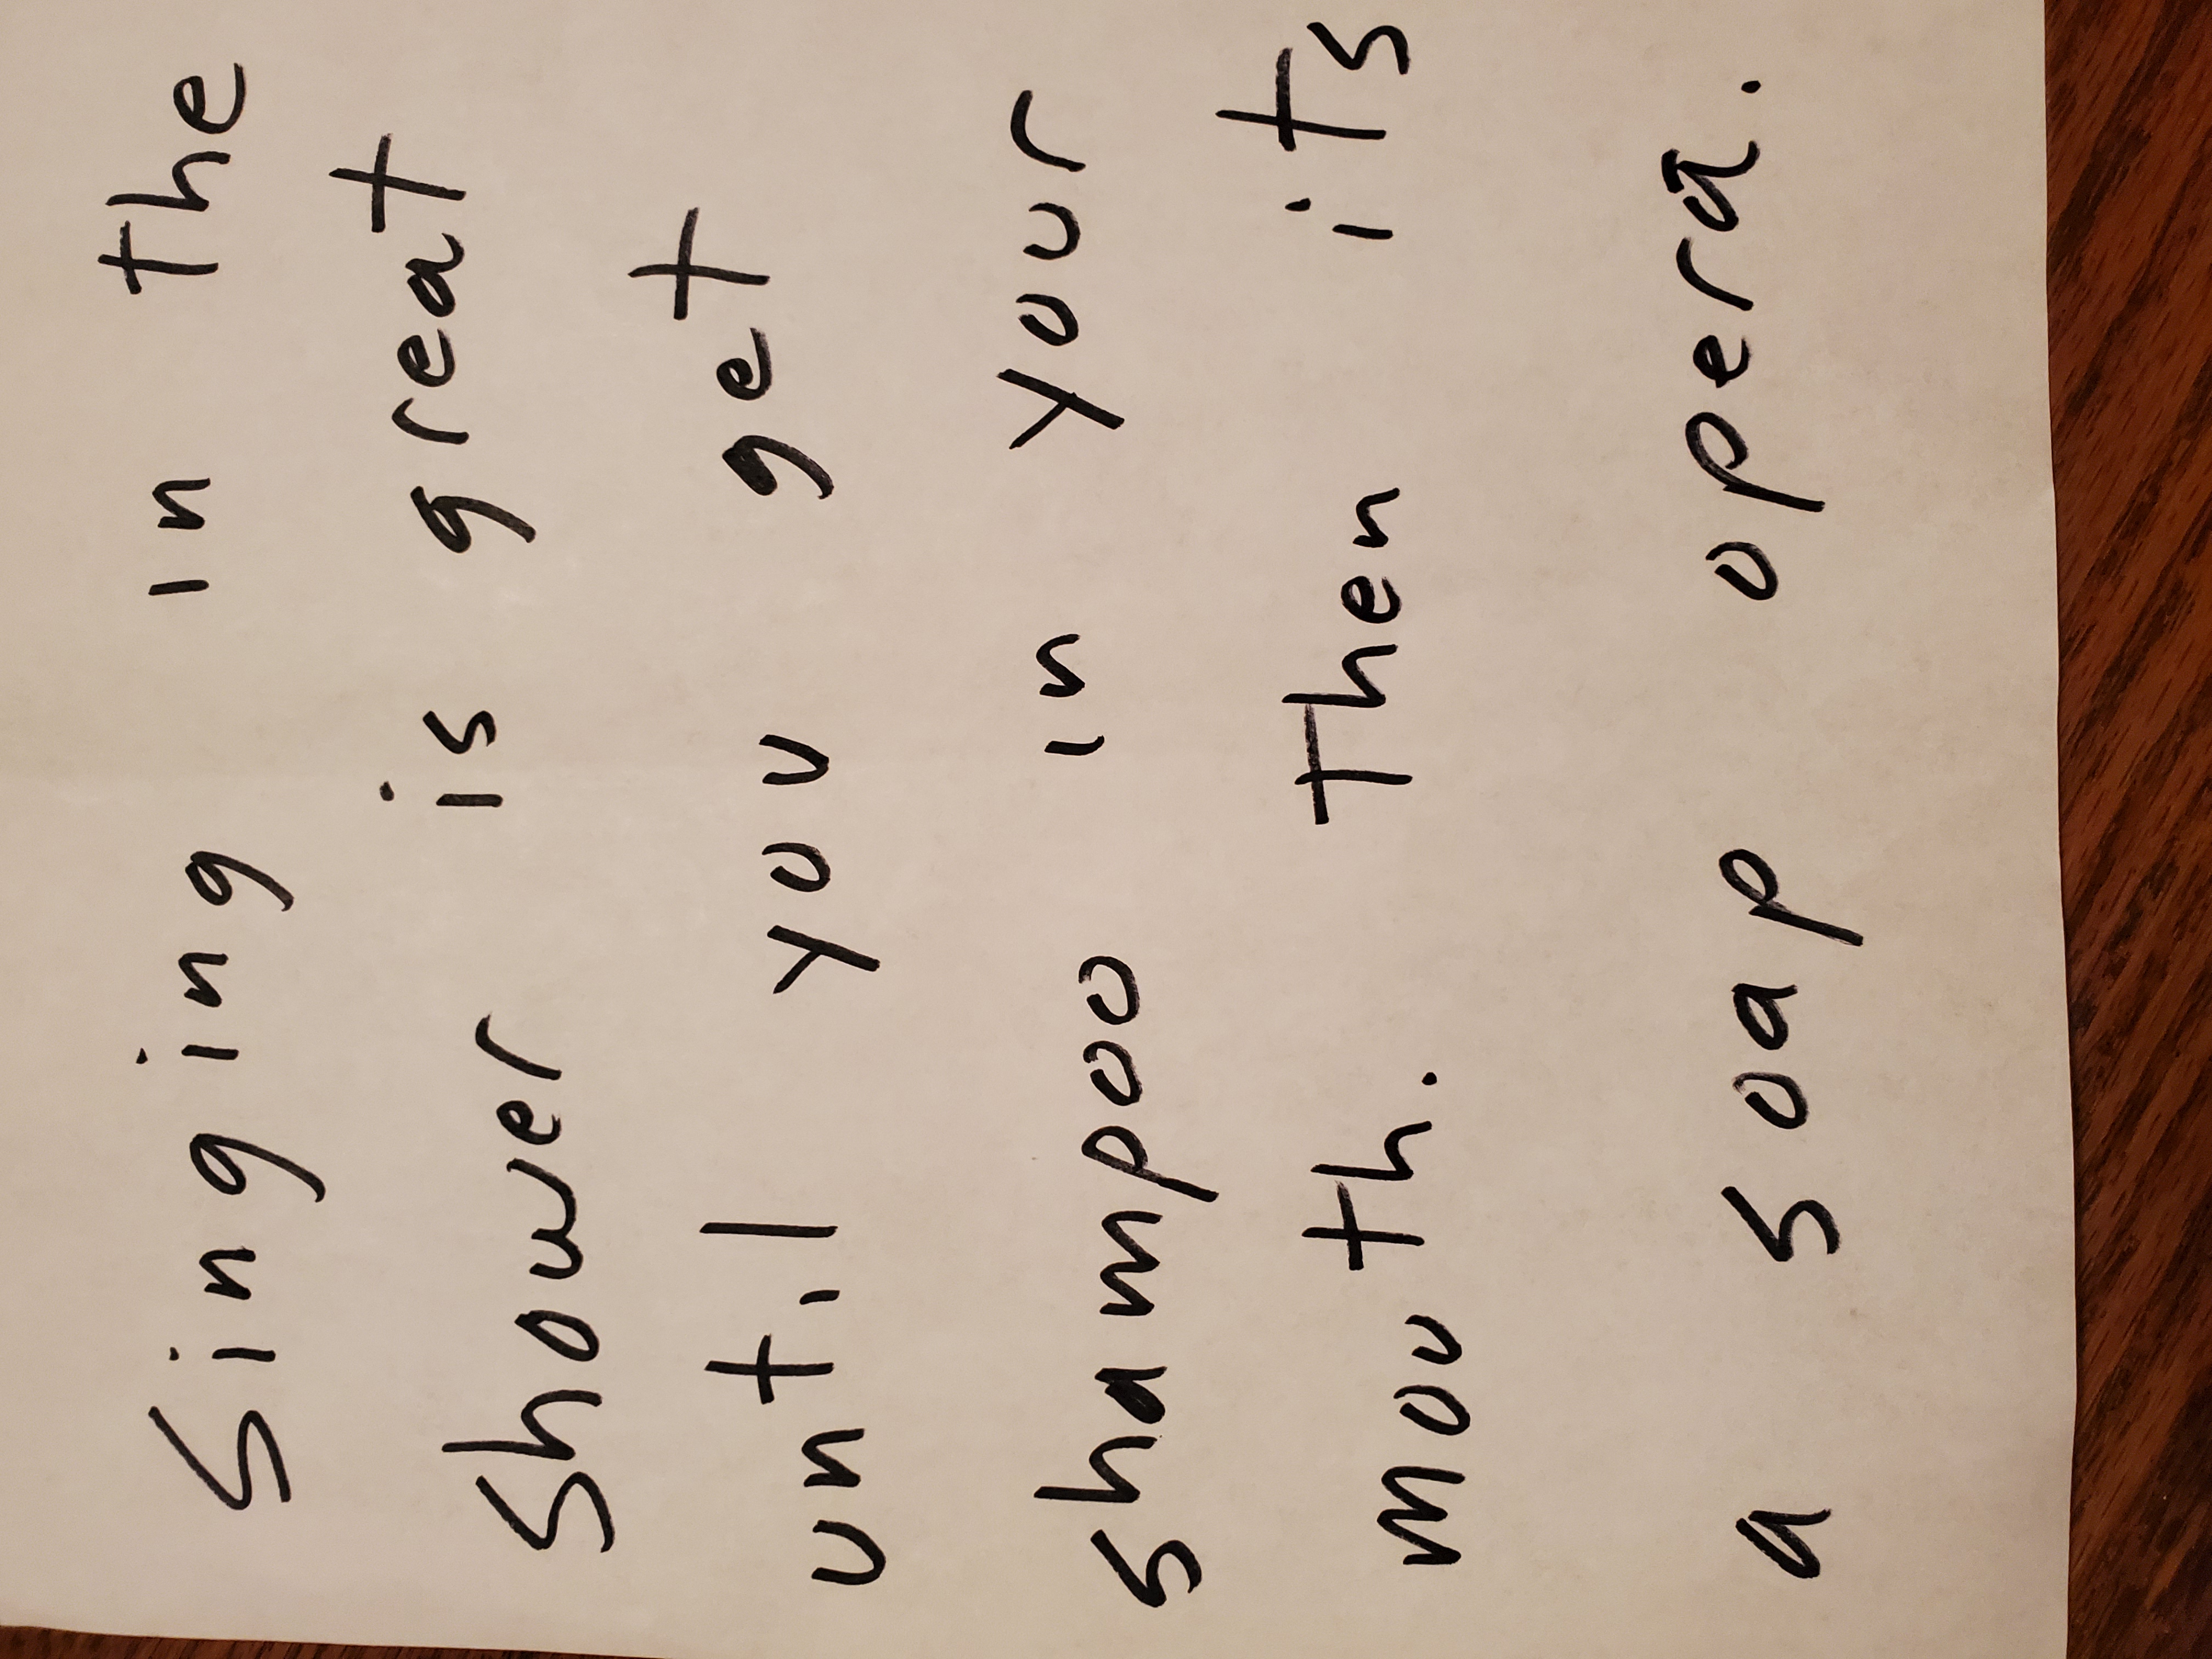 Singing in the
Shower is great
until you get
shampoo in your
mouth. Then its
a soap opera.